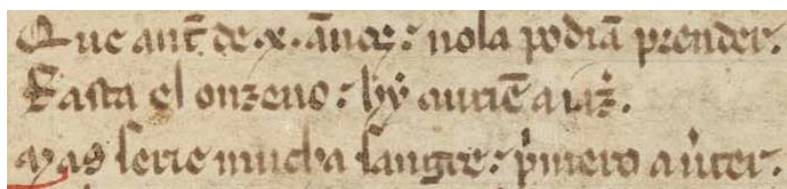 Que ant̃ de .x. ãnos: nola podiã prender.
Fasta el onzeno: hẏ auriẽ a iaz̃.
Mas ſerie mucha ſangre: p̾mero a u̾ter.